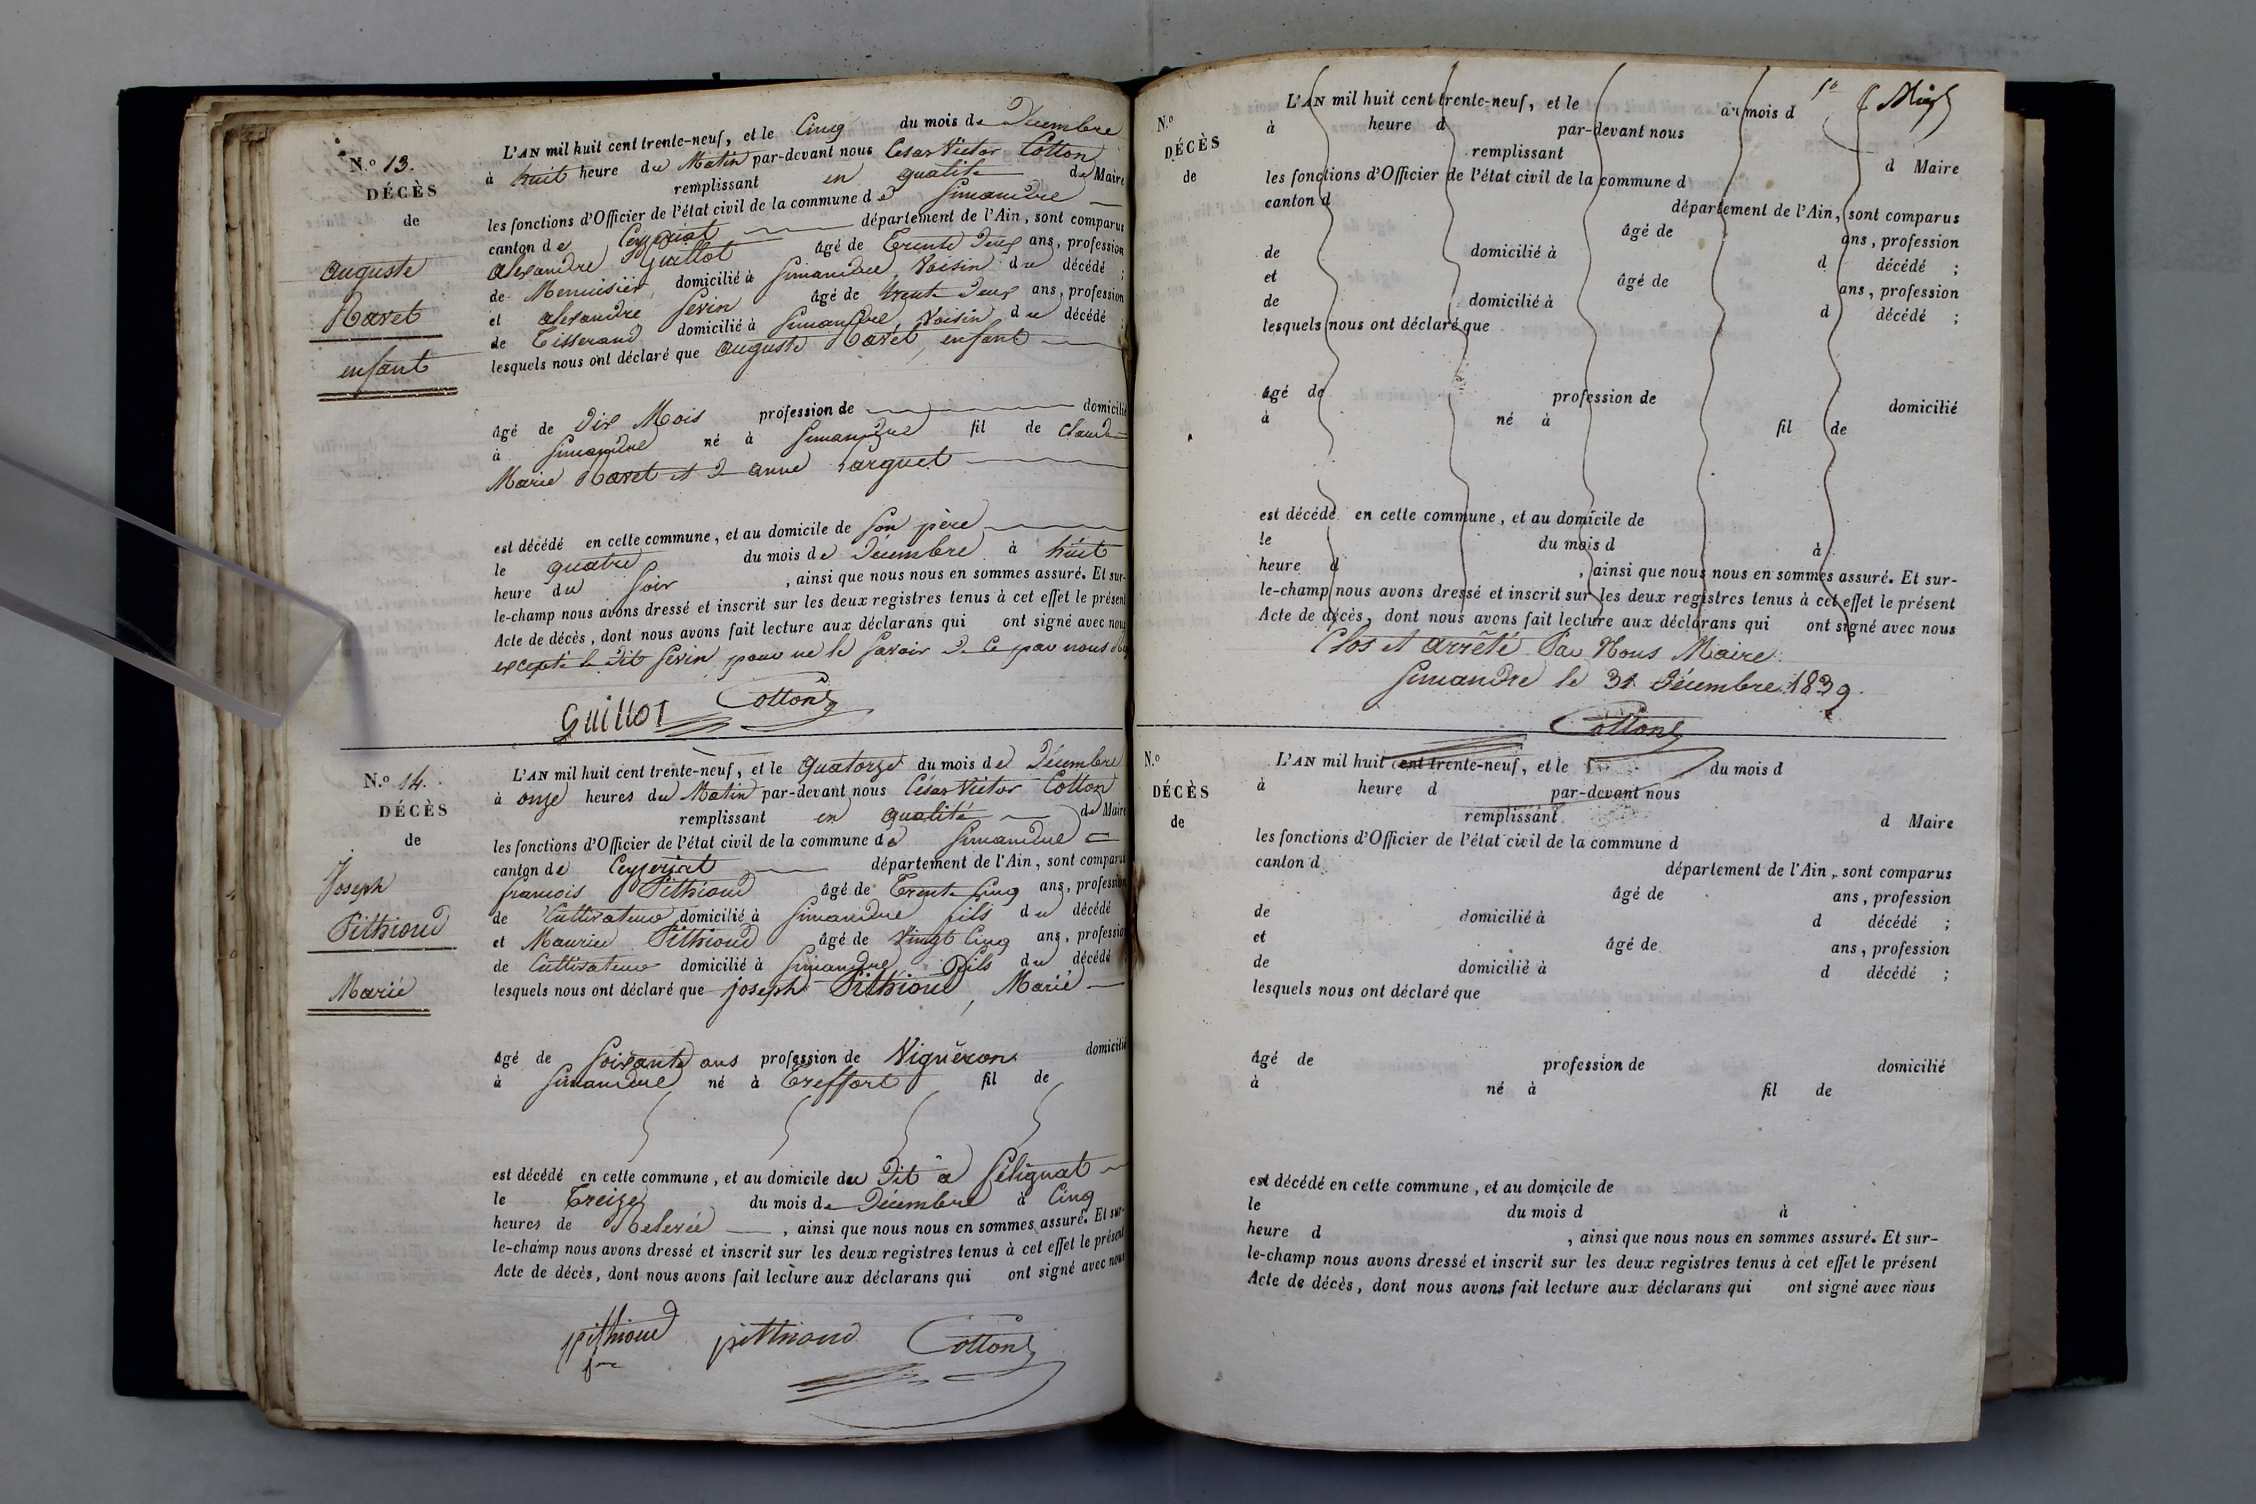 N.o 13.
DÉCÈS
de
auguste
Ravet
enfant
L'AN mil huit cent trente-neuf, et le Cinq du mois de Décembre
à huit heure du Matin par-devant nous César Victor Cotton
remplissant en qualité de Maire
les fonctions d'Officier de l'état civil de la commune de Simandre
canton de Ceyzeriat département de l'Ain, sont comparus
alexandre Guillot âgé de Trente Deux ans, profession
de Menuisier, domicilié à Simandre, Voisin du décédé ;
et alexandre Sevin âgé de trente Deux ans, profession
de Tisserand domicilié à Simandre, Voisin du décédé ;
lesquels nous ont déclaré que auguste Ravet, enfant
âgé de Dix Mois profession de domicilié
à Simandre né à Simandre fil de Claude
Marie Ravet et de anne
est décédé en cette commune, et au domicile de Son père
le quatre du mois de Décembre à huit
heure du Soir , ainsi que nous nous en sommes assuré. Et sur-
le-champ nous avons dressé et inscrit sur les deux registres tenus à cet effet le présent
Acte de décès, dont nous avons fait lecture aux déclarans qui ont signé avec nous
excepté le Dit Sevin pour ne le Savoir De Ce par nous
Guillot Cotton
N.o 14.
DÉCÈS
de
Joseph
Pithioud
Marié
L'AN mil huit cent trente-neuf, et le quatorze du mois de Décembre
à onze heures du Matin par-devant nous César Victor Cotton
remplissant en qualité de Maire
les fonctions d'Officier de l'état civil de la commune de Simandre
canton de Ceyzeriat département de l'Ain, sont comparus
francois Pithioud âgé de Trente Cinq ans, profession
de Cultivateur domicilié à Simandre fils du décédé
et Maurice Pithioud âgé de Vingt Cinq ans, profession
de Cultivateur domicilié à Simandre Fils du décédé ;
lesquels nous ont déclaré que joseph Pithioud, Marié
âgé de Soixante ans profession de Vigneron domicilié
à Simandre né à Treffort fil de
est décédé en cette commune, et au domicile du Dit à Sélignat
le Treize du mois de Décembre à Cinq
heures de Relevée , ainsi que nous nous en sommes assuré. Et sur-
le-champ nous avons dressé et inscrit sur les deux registres tenus à cet effet le présent
Acte de décès, dont nous avons fait lecture aux déclarans qui ont signé avec nous
pithioud pithioud Cotton
N.o
DÉCÈS
de
L'AN mil huit cent trente-neuf, et le du mois d
à heure d par-devant nous
remplissant
d Maire
les fonctions d'Officier de l'état civil de la commune d
canton d département de l'Ain, sont comparus
âgé de ans, profession
de domicilié à d décédé ;
et âgé de ans, profession
de domicilié à d décédé ;
lesquels nous ont déclaré que
âgé de profession de domicilié
à né à fil de
est décédé en cette commune, et au domicile de
le du mois d à
heure d , ainsi que nous nous en sommes assuré. Et sur-
le-champ nous avons dressé et inscrit sur les deux registres tenus à cet effet le présent
Acte de décès, dont nous avons fait lecture aux déclarans qui ont signé avec nous
Clos et arrêté Par Nous Maire
Simandre le 31 Décembre 1839.
Cotton
N.o
DÉCÈS
de
L'AN mil huit cent trente-neuf, et le du mois d
à heure d par-devant nous
remplissant d Maire
les fonctions d'Officier de l'état civil de la commune d
canton d département de l'Ain, sont comparus
âgé de ans, profession
de domicilié à d décédé ;
et âgé de ans, profession
de domicilié à d décédé ;
lesquels nous ont déclaré que
âgé de profession de domicilié
à né à fil de
est décédé en cette commune, et au domicile de
le du mois d à
heure d , ainsi que nous nous en sommes assuré. Et sur-
le-champ nous avons dressé et inscrit sur les deux registres tenus à cet effet le présent
Acte de décès, dont nous avons fait lecture aux déclarans qui ont signé avec nous